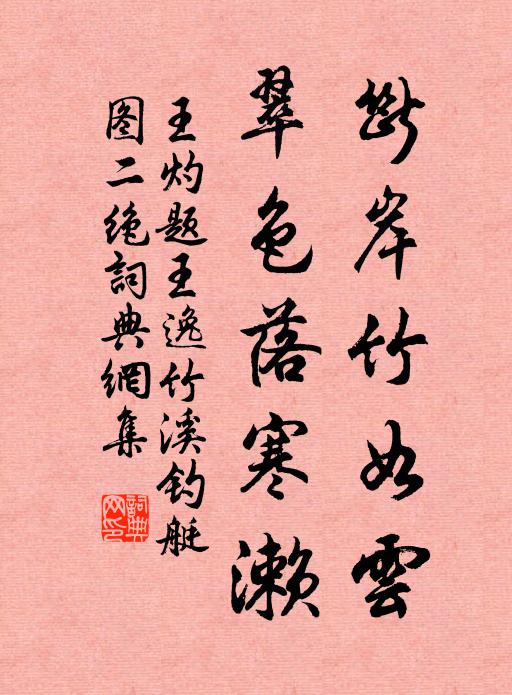 斷岸竹如雲
翠色落寒瀨
王灼题王逸竹溪钓艇
图二绝詞典網集
詞典
网印